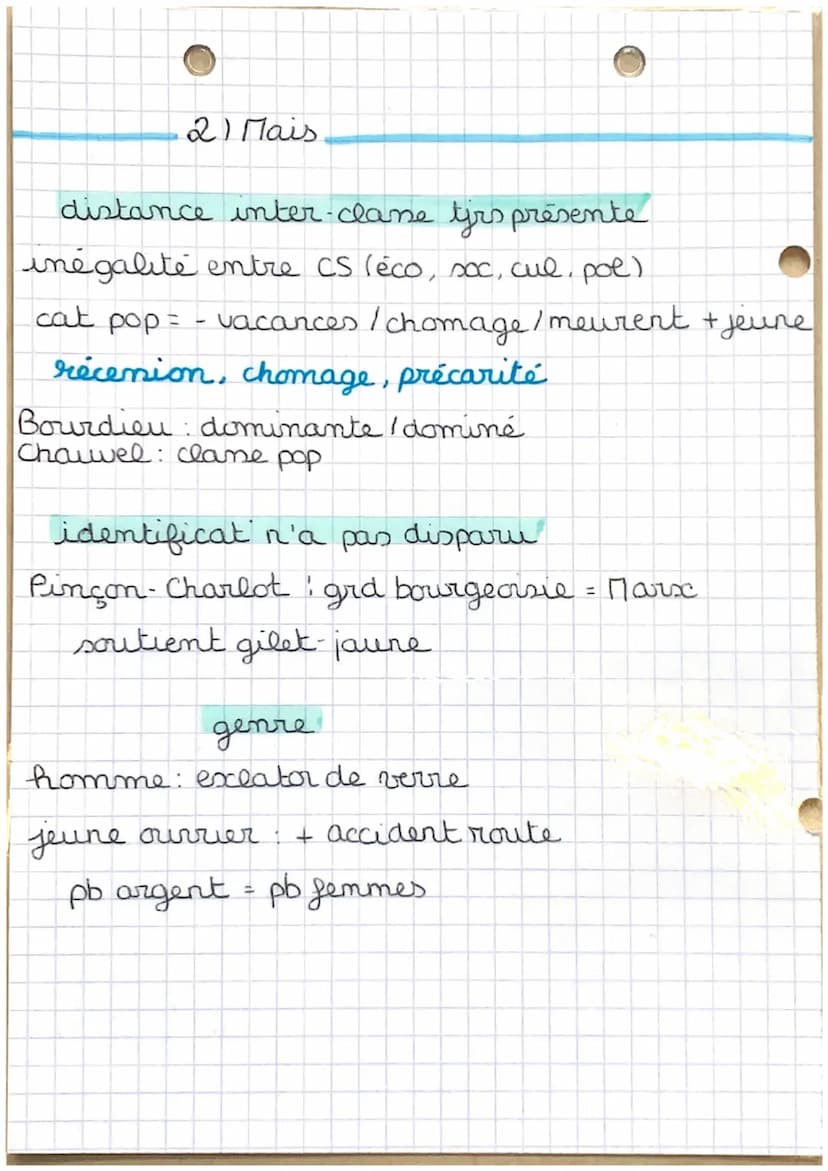 2) Mais
distance inter-classe tjrs présente
inégalité entre CS (éco, soc, cul, pol)
cat pop = - vacances / chomage / meurent + jeune
récession, chomage, précarité
Bourdieu : dominante / dominé
Chauvel : classe pop
identificat° n'a pas disparu
Pinçon-Charlot : grd bourgeoisie = Marx
soutient gilet-jaune
genre
homme : exclator de verre
jeune ouvrier : + accident route
pb argent = pb femmes